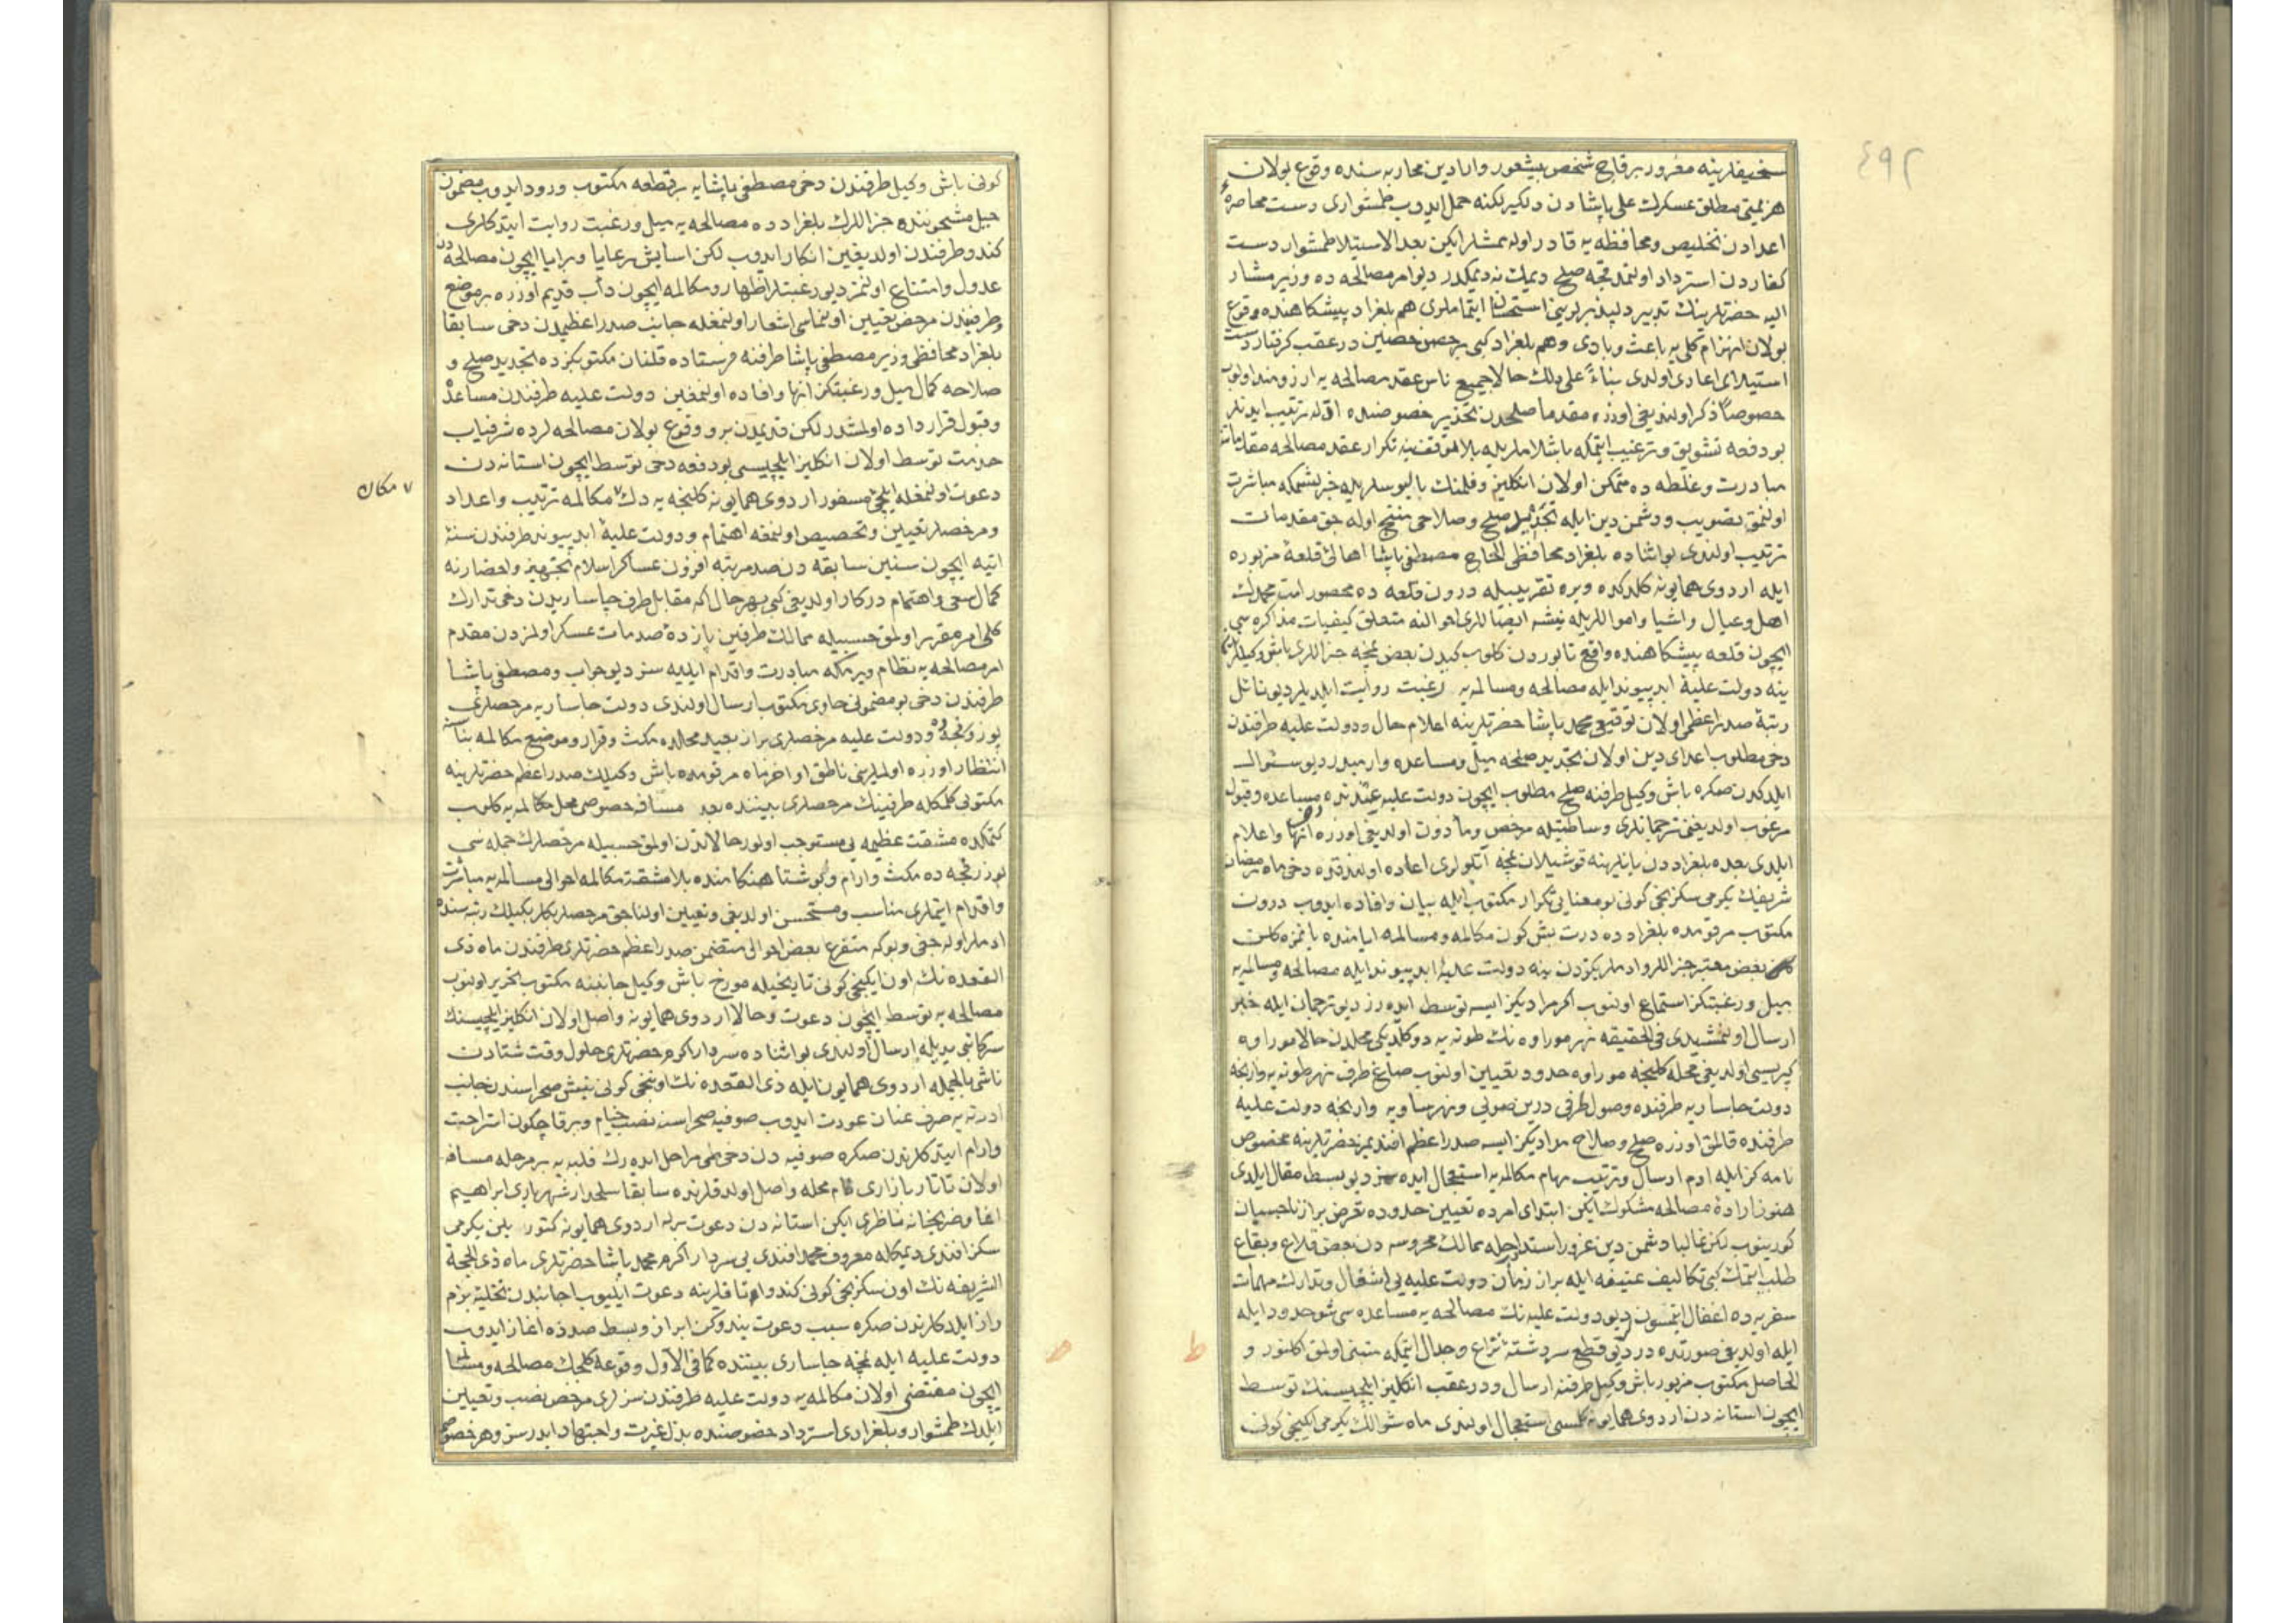 ٤٩٢
سخيفلرينه مغرور برقاچ شخص بيشعور وارادين محاربه سنده وقوع بولان
هزيمتى مطلق عسكرك على پاشادن دلكيرلكنه حمل ايدوب طمشوارى دست محاصرۀ
اعدادن تخليص ومحافظه يه قادر اوله مشلر ايكن بعد الاستيلا طمشوار دست
كفاردن استرداد اولنمدقجه صلح ديمك نه ديمكدر ديو امر مصالحه ده وزير مشار
اليه حضرتلرينك تدبير دلپذيرلرينى استحسان ايتماملرى هم بلغراد پيشكاهنده وقوع
بولان انهزام كلى يه باعث وبادى وهم بلغراد كبى بر حصن حصين در عقب كرفتار دست
استيلاى اعادى اولدى بناءً على ذلك حالا جميع ناس عقد مصالحه يه ارزومند اولوب
خصوصاً ذكر اولنديغى اوزره مقدما صلحدن تحذير خصوصنده اقاله ترتيب ايدنلر
بو دفعه تشويق وترغيب ايتمكه باشلاملريله بلا توقف ينه تكرار عقد مصالحه مقدماتنه
مبادرت وغلطه ده متمكن اولان انكليز وفلمنك باليوسلريله خبرلشمكه مباشرت
اولنمق تصويب ودشمن دين ايله تجديد صلح وصلاحى منتج اوله جق مقدمات
ترتيب اولندى بو اثناده بلغراد محافظى الحاج مصطفى پاشا اهالئ قلعۀ مزبوره
ايله اردوى همايونه كلدكده ويره تقريبيله درون قلعه ده محصور امت محمدك
اهل وعيال واشيا واموالاريله نيشه ايصاللرى احوالنه متعلق كيفيات مذاكره سى
ايچون قلعه پيشكاهنده واقع تابوردن كلوب كيدن بعض نمچه جنراللرى باش وكيللرينك
ينه دولت عليۀ ابد پيوند ايله مصالحه ومسالمه يه رغبت روايت ايلديلر ديو نائل
رتبۀ صدراعظمى اولان توقيعى محمد پاشا حضرتلرينه اعلام حال ودولت عليه طرفندن
دخى مطلوب اعداى دين اولان تجديد صلحه ميل ومساعده وارميدر ديو سئوال
ايلدكدن صكره باش وكيل طرفنه صلح مطلوب ايچون دولت عليه عندنده مساعده وقبول
مرغوب اولديغنى ترجمانلرى وساطتيله مرخص ومأذون اولديغى اوزره انها واعلام
ايلدى بعده بلغراددن يانلرينه قوشيلان نمچه آتلولرى اعاده اولندقده دخى ماه رمضان
شريفك يكرمى سكزنجى كونى بو معنايى تكرار مكتوب ايله بيان وافاده ايدوب درون
مكتوب مرقومده بلغرادده درت بش كون مكالمه ومسالمه ايامنده يانمزه كلن
بعض معتبر جنراللر وادملريكزدن ينه دولت عليۀ ابد پيوند ايله مصالحه ومسالمه يه
ميل ورغبتكز استماع اولنوب اكر مراديكز ايسه توسط ايده رز ديو ترجمان ايله خبر
ارسال اولنمشيدى فى الحقيقه نهر موراوه نك طونه يه دوكلديكى محلدن حالا موراوه
كپريسى اولديغى محله كلنجه موراوه حدود تعيين اولنوب صاغ طرف نهر طونه يه وارنجه
دولت چاساريه طرفنده وصول طرفى درين صويى ونهر ساويه وارنجه دولت عليه
طرفنده قالمق اوزره صلح وصلاح مراديكز ايسه صدراعظم افنديمز حضرتلرينه مخصوص
نامه كز ايله ادم ارسال وترتيب مهام مكالمه يه استعجال ايده سز ديو بسط مقال ايلدى
هنوز ارادۀ مصالحه مشكوك ايكن ابتداى امرده تعيين حدوده تعرض براز نامناسبيان
كورينوب لكن غالبا دشمن دين غرور استدراجله ممالك محروسه دن بعض قلاع وبقاع
طلب ايتمك كبى تكاليف عنيفه ايله براز زمان دولت عليه يى اشغال وتدارك مهمات
سفريه ده اغفال ايتمسون ديو دولت عليه نك مصالحه يه مساعده سى شو حدود ايله
ايله اولديغى صورتده در ديو قطع سررشتۀ نزاع وجدال ايتمكه مبنى اولمق اكلنور و
الحاصل مكتوب مزبور باش وكيل طرفنه ارسال ودر عقب انكليز ايلچيسنك توسط
ايچون استانه دن اردوى همايونه كلمسى استعجال اولندى ماه شوالك يكرمى ايكنجى كونى
كونى باش وكيل طرفندن دخى مصطفى پاشايه بر قطعه مكتوب ورود ايدوب مضمون
جبل مشحوننده جنراللرك بلغرادده مصالحه يه ميل ورغبت روايت ايتدكلرى
كندو طرفندن اولديغين انكار ايدوب لكن اسايش رعايا وبرايا ايچون مصالحه دن
عدول وامتناع اولنمز ديو رغبتلر اظهار ومكالمه ايچون دأب قديم اوزره بر موضع
وطرفيندن مرخص تعيين اولنماسى اشعار اولنمغله جانب صدراعظميدن دخى سابقا
بلغراد محافظى وزير مصطفى پاشا طرفنه فرستاده قلنان مكتوبكزده تجديد صلح و
صلاحه كمال ميل ورغبتكز انها وافاده اولنمغين دولت عليه طرفندن مساعده
وقبول قرارداده اولمشدر لكن قديمدن برو وقوع بولان مصالحه لرده شرفياب
خدمت توسط اولان انكليز ايلچيسى بو دفعه دخى توسط ايچون استانه دن
دعوت اولنمغله ايلچئ مسفور اردوى همايونه كلنجه يه دك ٧ مكالمه ترتيب واعداد
٧ مكان
ومرخصلر تعيين وتخصيص اولنمغه اهتمام ودولت عليۀ ابد پيوند طرفندن سنۀ
اتيه ايچون سنين سابقه دن صد مرتبه افزون عساكر اسلام تجهيز واحضارنه
كمال سعى واهتمام دركار اولديغى كبى بهر حال اكه مقابل طرف چاساريدن دخى تدارك
كلى امر مقرر اولمق حسبيله ممالك طرفين پازدۀ صدمات عسكر اولمزدن مقدم
امر مصالحه يه نظام ويرمكه مبادرت واقدام ايليه سز ديو جواب ومصطفى پاشا
طرفندن دخى بو مضمونى حاوى مكتوب ارسال اولندى دولت چاساريه مرخصلرى
پوزروفچه ده ودولت عليه مرخصلرى براز بعيد محلده مكث وقرار وموضع مكالمه بناسنه
انتظار اوزره اولملرينى ناطق اواخر ماه مرقومده باش وكيلك صدراعظم حضرتلرينه
مكتوبى كلمكله طرفينك مرخصلرى بيننده بعد مسافه خصوصى محل مكالمه يه كلوب
كتمكده مشقت عظيمه يى مستوجب اولور حالاتدن اولمق حسبيله مرخصلرك جمله سى
پوزرفچه ده مكث وارام وكوشتا هنكامنده بلا مشقت مكالمه احوالى مسالمه يه مباشرت
واقدام ايتملرى مناسب ومستحسن اولديغى وتعيين اولناجق مرخصلر بكلربكيلك رتبه سنده
ادملر اوله جغى وبوكه متفرع بعض احوالى متضمن صدراعظم حضرتلرى طرفندن ماه ذى
القعده نك اون ايكنجى كونى تاريخيله مورخ باش وكيل جانبنه مكتوب تحرير اولنوب
مصالحه يه توسط ايچون دعوت وحالا اردوى همايونه واصل اولان انكليز ايلچيسنك
سركاتبى يديله ارسال اولندى بو اثناده سردار اكرم حضرتلرى حلول وقت شتادن
ناشى بالجمله اردوى همايون ايله ذى القعده نك اونبجى كونى نيش صحراسندن جانب
ادرنه يه صرف عنان عودت ايدوب صوفيه صحراسنه نصب خيام وبرقاچ كون استراحت
وارام ايتدكلرندن صكره صوفيه دن دخى طى مراحل ايده رك فلبه يه بر مرحله مسافه
اولان تاتار بازارى نام محله واصل اولدقلرنده سابقا سلحدار شهريارى ابراهيم
اغا وضربخانه ناظرى ايكن استانه دن دعوت برله اردوى همايونه كتورديلن يكرمى
سكز افندى ديمكله معروف محمد افندى يى سردار اكرم محمد پاشا حضرتلرى ماه ذى الحجة
الشريفه نك اون سكزنجى كونى كندو اوتاقلرينه دعوت ايليوب اجانبدن تخليۀ بزم
راز ايلدكلرندن صكره سبب دعوت بندوكن ابراز وبسط صدده اغاز ايدوب
دولت عليه ايله نمچه چاسارى بيننده كما فى الاول وقوعه كلجك مصالحه ومسالمه
ايچون مقتضى اولان مكالمه يه دولت عليه طرفندن سزلرى مرخص نصب وتعيين
ايلدك طمشوار وبلغرادى استرداد خصوصنده بذل غيرت واجتهاد ايدرسز وهر خصوص